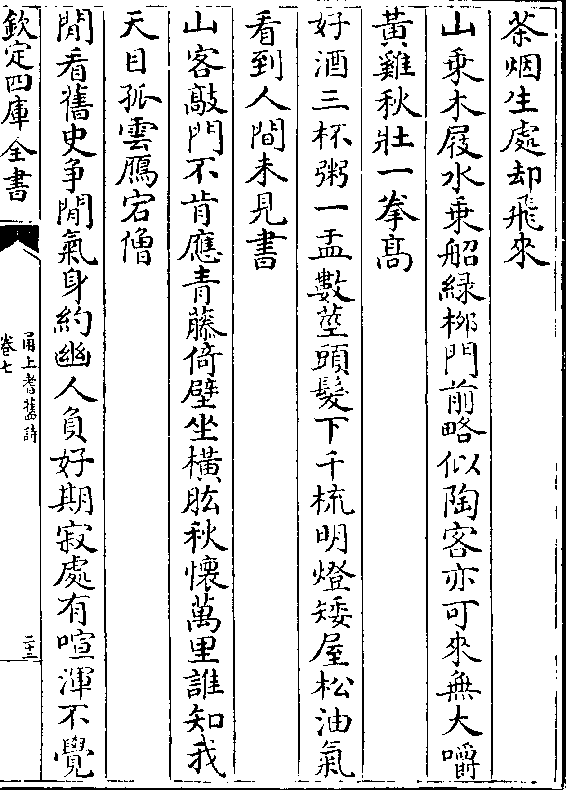 茶烟生處却飛來
山乗木屐水乗船緑栁門前略似陶客亦可來無大嚼
黃雞秋壯一拳髙
好酒三杯粥一盂數莖頭髮下千梳明燈矮屋松油氣
看到人間未見書
山客敲門不肯應青藤倚壁坐橫肱秋懷萬里誰知我
天目孤雲鴈宕僧
閒看舊史争閒氣身約幽人負好期寂處有喧渾不覺
欽定四庫全書
甬上耆舊詩
卷七
二十三